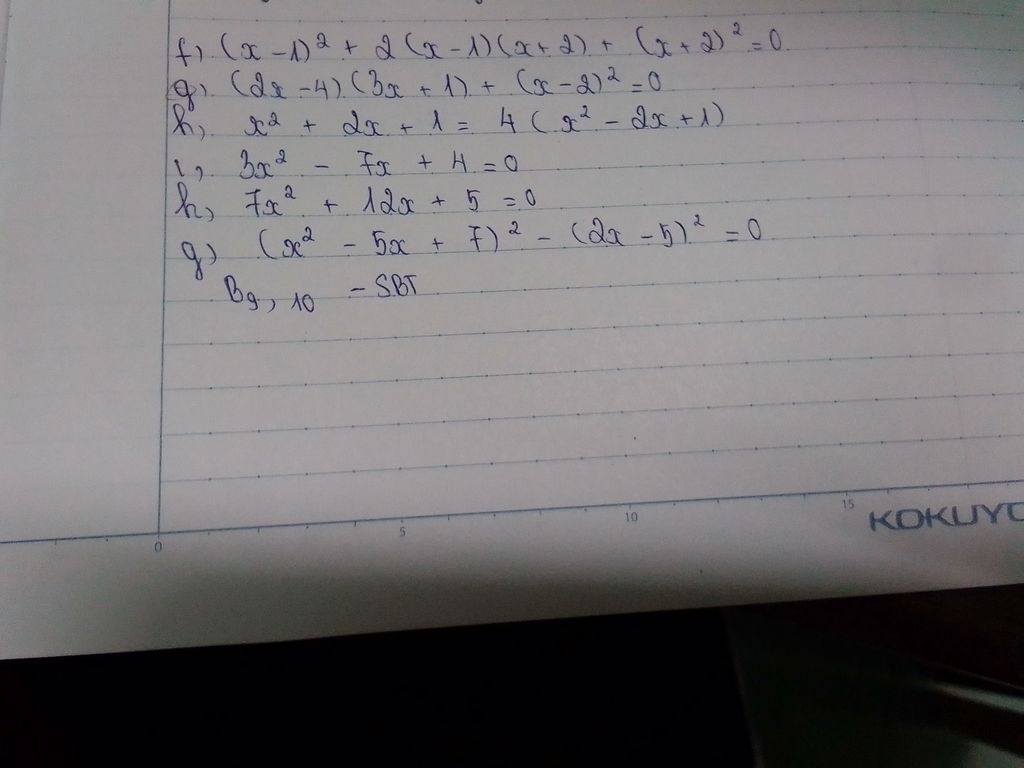 f, (x - 1)² + 2 (x - 1)(x + 2) + (x + 2)² = 0
g, (2x - 4)(3x + 1) + (x - 2)² = 0
h, x² + 2x + 1 = 4 (x² - 2x + 1)
i, 3x² - 7x + 4 = 0
h, 7x² + 12x + 5 = 0
g) (x² - 5x + 7)² - (2x - 5)² = 0
B9, 10 - SBT
0 5 10 15
KOKUYO